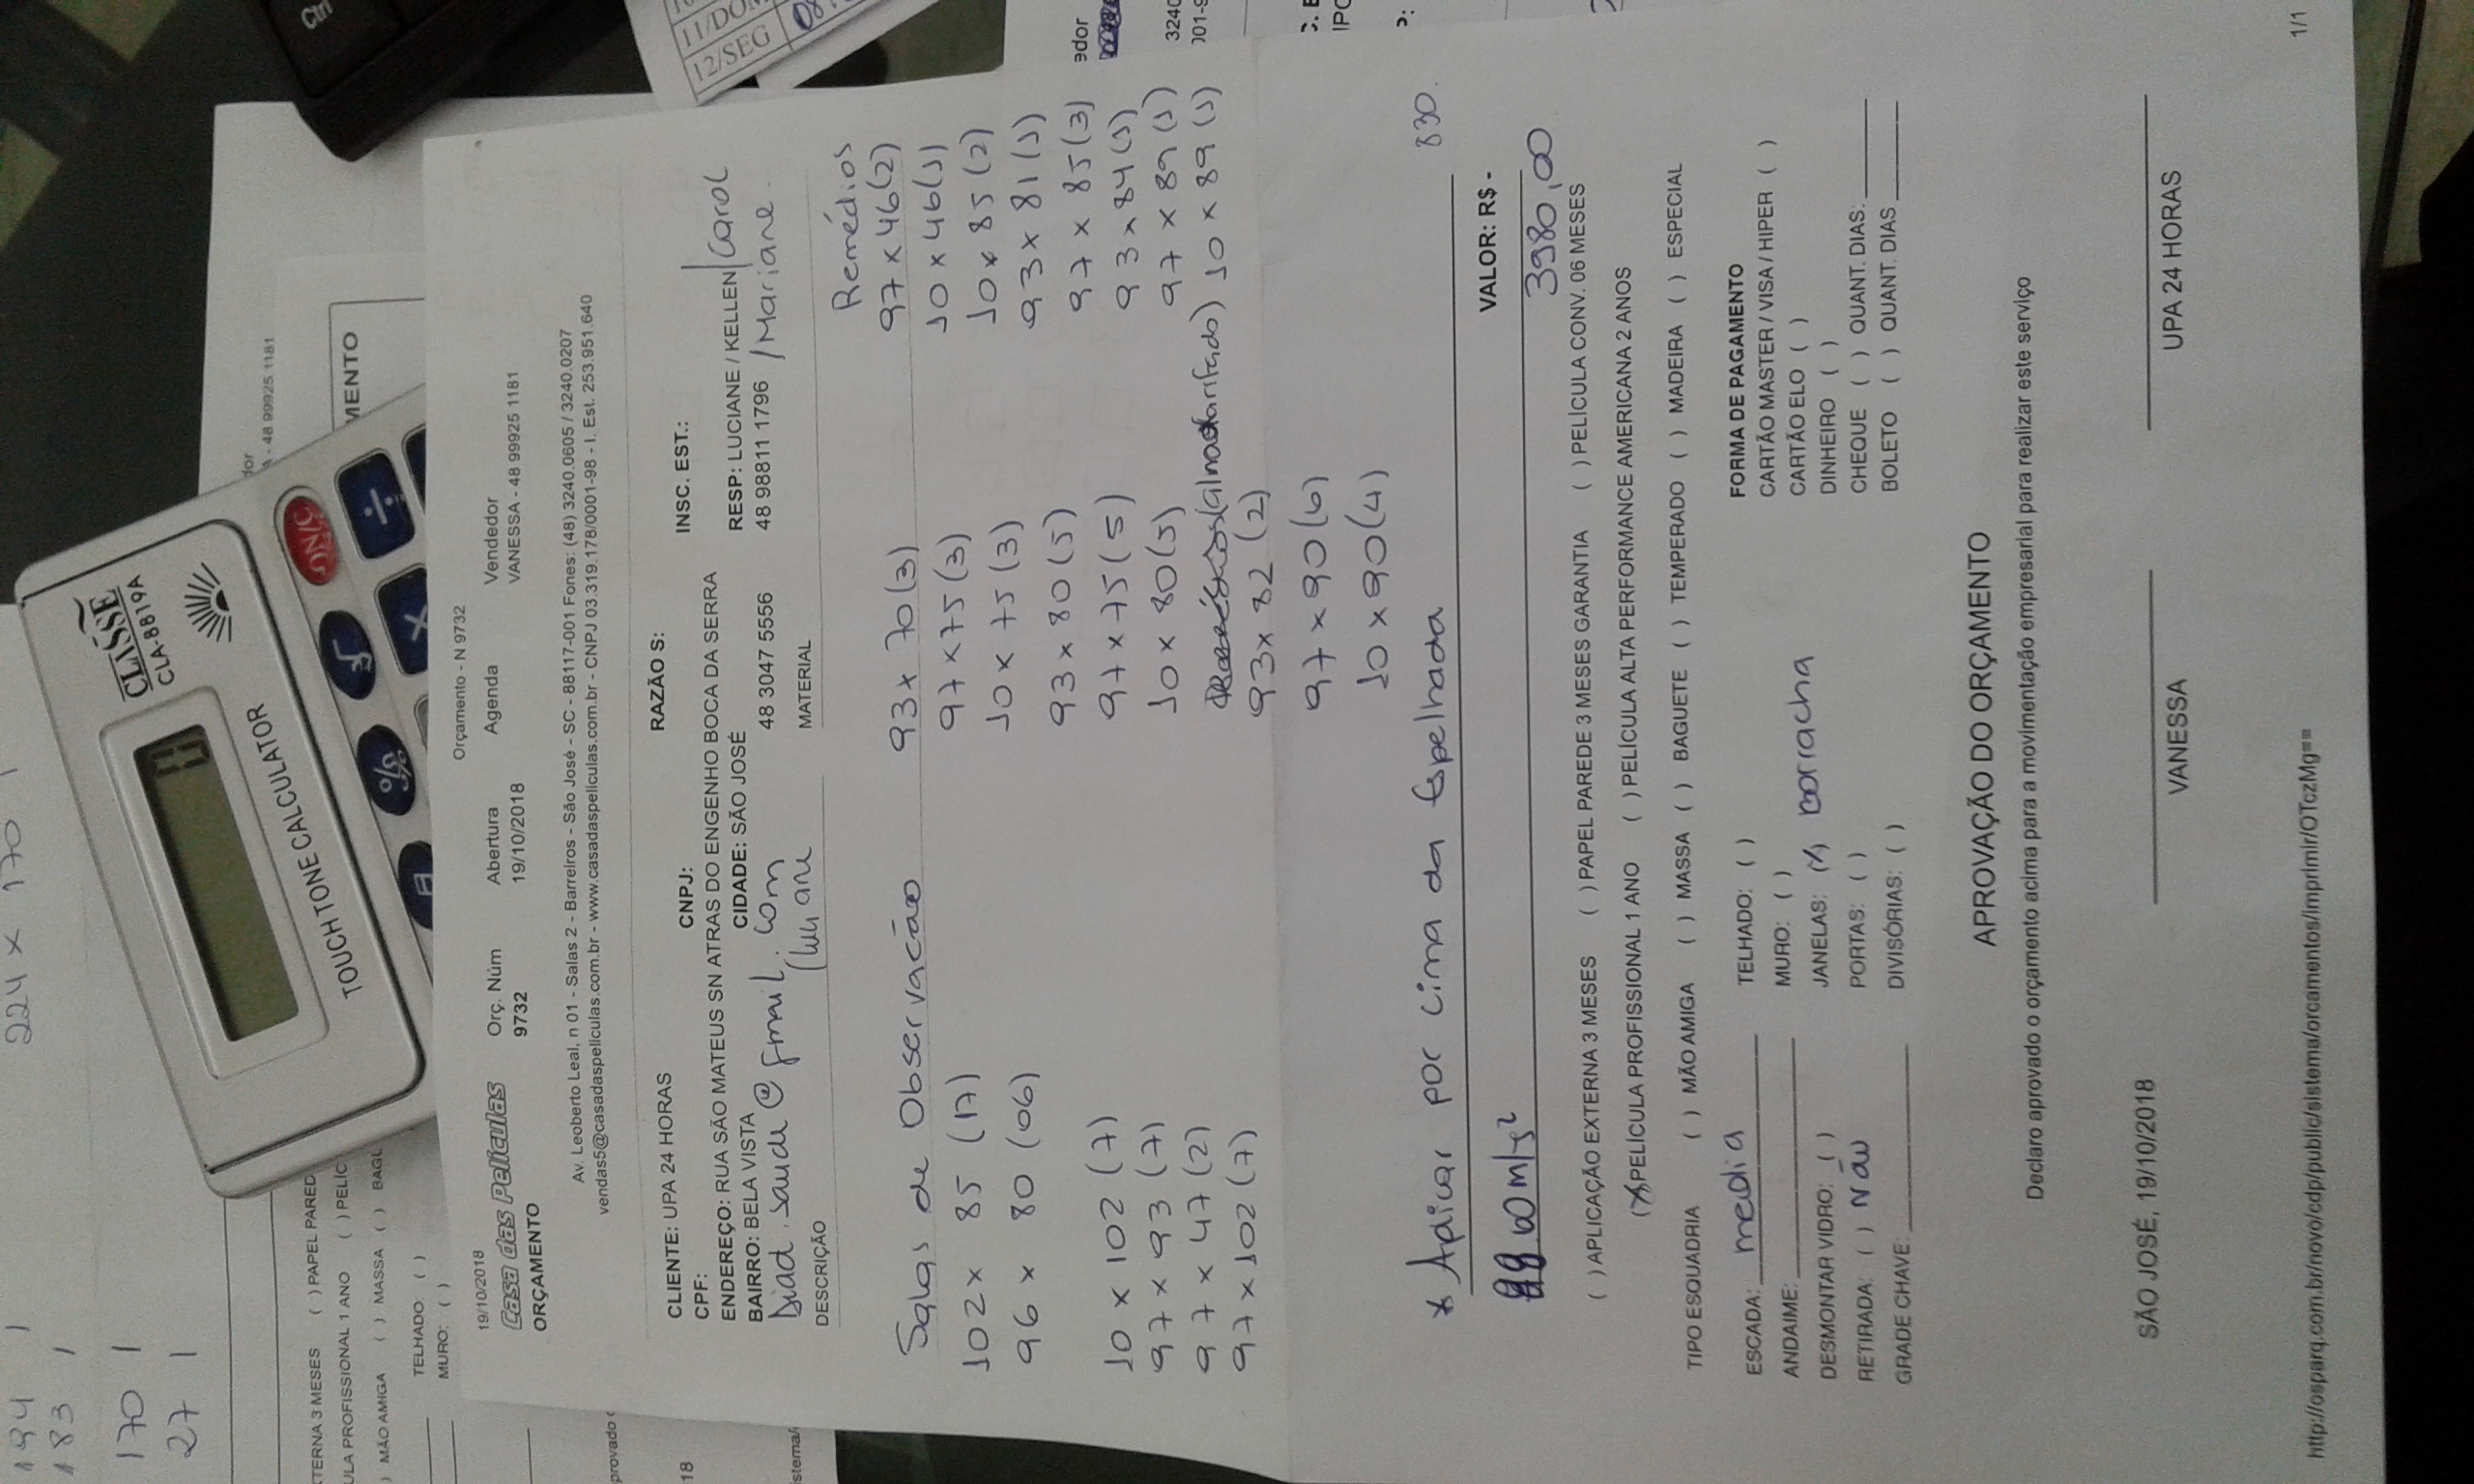 224 x 170 1
194 1
183 1
170 1
27 1
Ctrl
11/DOM
12/SEG
CLASSE
CLA-8819A
TOUCH TONE CALCULATOR
ON/C
÷
×
√
%
48 99925 1181
TERNA 3 MESES ( ) PAPEL PARED
ULA PROFISSIONAL 1 ANO ( ) PELÍC
( ) MÃO AMIGA ( ) MASSA ( ) BAGU
TELHADO: ( )
MURO: ( )
provado
18
3240
001-9
19/10/2018
Orçamento - N 9732
Casa das Películas
ORÇAMENTO
Orç. Núm
9732
Abertura
19/10/2018
Agenda
Vendedor
VANESSA - 48 99925 1181
Av. Leoberto Leal, n 01 - Salas 2 - Barreiros - São José - SC - 88117-001 Fones: (48) 3240.0605 / 3240.0207
vendas5@casadaspeliculas.com.br - www.casadaspeliculas.com.br - CNPJ 03.319.178/0001-98 - I. Est. 253.951.640
CLIENTE: UPA 24 HORAS RAZÃO S:
CPF: CNPJ: INSC. EST.:
ENDEREÇO: RUA SÃO MATEUS SN ATRAS DO ENGENHO BOCA DA SERRA
BAIRRO: BELA VISTA CIDADE: SÃO JOSÉ RESP: LUCIANE / KELLEN / Carol
48 3047 5556 48 98811 1796 / Mariane.
Diad.saude@gmail.com
DESCRIÇÃO MATERIAL
Salas de Observação
102 x 85 (17)
96 x 80 (06)
10 x 102 (7)
97 x 93 (7)
97 x 47 (2)
97 x 102 (7)
93 x 70 (3)
97 x 75 (3)
10 x 75 (3)
93 x 80 (5)
97 x 75 (5)
10 x 80 (5)
93 x 82 (2)
97 x 90 (6)
10 x 90 (4)
Remédios
97 x 46 (2)
10 x 46 (1)
10 x 85 (2)
93 x 81 (1)
97 x 85 (3)
93 x 84 (1)
97 x 89 (1)
(almoxarifado) 10 x 89 (1)
* Aplicar por cima da Espelhada 830.
60 m/s² VALOR: R$ -
3980,00
( ) APLICAÇÃO EXTERNA 3 MESES ( ) PAPEL PAREDE 3 MESES GARANTIA ( ) PELÍCULA CONV. 06 MESES
(X) PELÍCULA PROFISSIONAL 1 ANO ( ) PELÍCULA ALTA PERFORMANCE AMERICANA 2 ANOS
TIPO ESQUADRIA ( ) MÃO AMIGA ( ) MASSA ( ) BAGUETE ( ) TEMPERADO ( ) MADEIRA ( ) ESPECIAL
ESCADA: media
ANDAIME:
DESMONTAR VIDRO: ( )
RETIRADA: ( ) Não
GRADE CHAVE:
TELHADO: ( )
MURO: ( )
JANELAS: (X) borracha
PORTAS: ( )
DIVISÓRIAS: ( )
FORMA DE PAGAMENTO
CARTÃO MASTER / VISA / HIPER ( )
CARTÃO ELO ( )
DINHEIRO ( )
CHEQUE ( ) QUANT. DIAS:
BOLETO ( ) QUANT. DIAS
APROVAÇÃO DO ORÇAMENTO
Declaro aprovado o orçamento acima para a movimentação empresarial para realizar este serviço
SÃO JOSÉ, 19/10/2018
VANESSA
UPA 24 HORAS
http://osparq.com.br/novo/cdp/public/sistema/orcamentos/imprimir/OTczMg== 1/1